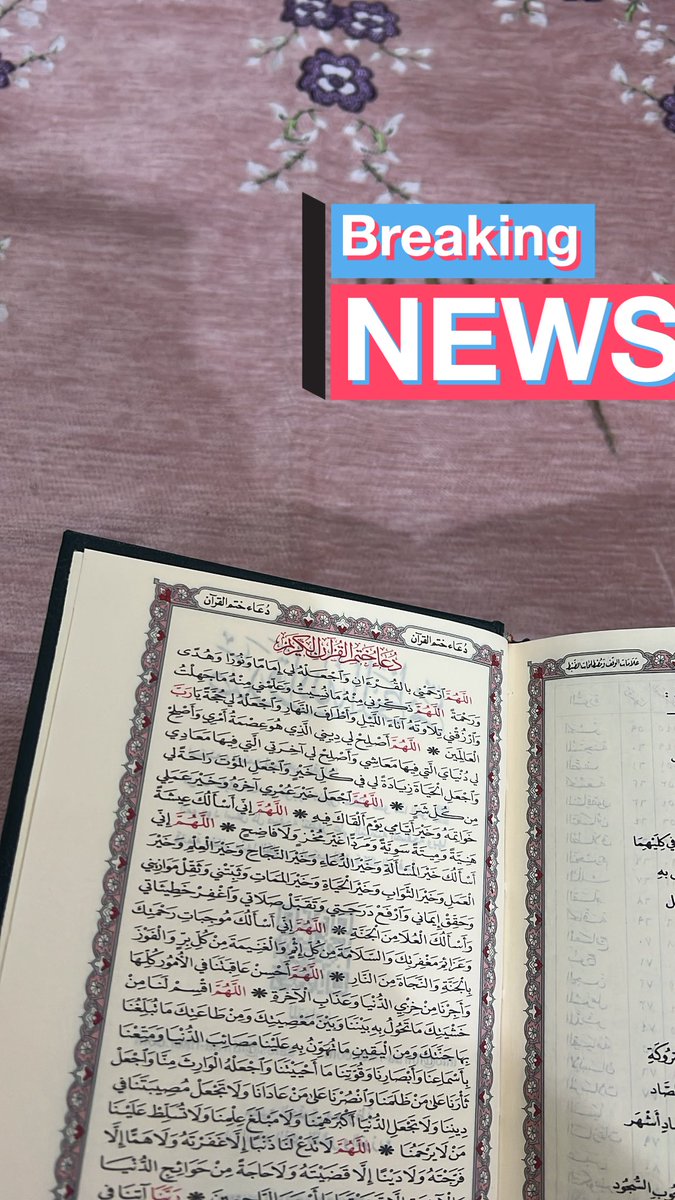 Breaking
NEWS
دُعَاء خَتْمِ القُرآن
دُعَاء خَتْمِ القُرآن
دُعَاءُ خَتْمِ القُرْآنِ الكَرِيمِ
اللَّهُمَّ ارْحَمْنِي بِالْقُرْءَانِ وَاجْعَلْهُ لِي إِمَامًا وَنُورًا وَهُدًى
وَرَحْمَةً اللَّهُمَّ ذَكِّرْنِي مِنْهُ مَا نَسِيتُ وَعَلِّمْنِي مِنْهُ مَا جَهِلْتُ
وَارْزُقْنِي تِلَاوَتَهُ آنَاءَ اللَّيْلِ وَأَطْرَافَ النَّهَارِ وَاجْعَلْهُ لِي حُجَّةً يَا رَبَّ
الْعَالَمِينَ * اللَّهُمَّ أَصْلِحْ لِي دِينِي الَّذِي هُوَ عِصْمَةُ أَمْرِي وَأَصْلِحْ
لِي دُنْيَايَ الَّتِي فِيهَا مَعَاشِي وَأَصْلِحْ لِي آخِرَتِي الَّتِي فِيهَا مَعَادِي
وَاجْعَلِ الْحَيَاةَ زِيَادَةً لِي فِي كُلِّ خَيْرٍ وَاجْعَلِ الْمَوْتَ رَاحَةً لِي
مِنْ كُلِّ شَرٍّ * اللَّهُمَّ اجْعَلْ خَيْرَ عُمْرِي آخِرَهُ وَخَيْرَ عَمَلِي
خَوَاتِمَهُ وَخَيْرَ أَيَّامِي يَوْمَ أَلْقَاكَ فِيهِ * اللَّهُمَّ إِنِّي أَسْأَلُكَ عِيشَةً
هَنِيَّةً وَمِيتَةً سَوِيَّةً وَمَرَدًّا غَيْرَ مُخْزٍ وَلَا فَاضِحٍ * اللَّهُمَّ إِنِّي
أَسْأَلُكَ خَيْرَ الْمَسْأَلَةِ وَخَيْرَ الدُّعَاءِ وَخَيْرَ النَّجَاحِ وَخَيْرَ الْعِلْمِ وَخَيْرَ
الْعَمَلِ وَخَيْرَ الثَّوَابِ وَخَيْرَ الْحَيَاةِ وَخَيْرَ الْمَمَاتِ وَثَبِّتْنِي وَثَقِّلْ مَوَازِينِي
وَحَقِّقْ إِيمَانِي وَارْفَعْ دَرَجَتِي وَتَقَبَّلْ صَلَاتِي وَاغْفِرْ خَطِيئَاتِي
وَأَسْأَلُكَ الْعُلَا مِنَ الْجَنَّةِ * اللَّهُمَّ إِنِّي أَسْأَلُكَ مُوجِبَاتِ رَحْمَتِكَ
وَعَزَائِمَ مَغْفِرَتِكَ وَالسَّلَامَةَ مِنْ كُلِّ إِثْمٍ وَالْغَنِيمَةَ مِنْ كُلِّ بِرٍّ وَالْفَوْزَ
بِالْجَنَّةِ وَالنَّجَاةَ مِنَ النَّارِ * اللَّهُمَّ أَحْسِنْ عَاقِبَتَنَا فِي الْأُمُورِ كُلِّهَا
وَأَجِرْنَا مِنْ خِزْيِ الدُّنْيَا وَعَذَابِ الْآخِرَةِ * اللَّهُمَّ اقْسِمْ لَنَا مِنْ
خَشْيَتِكَ مَا تَحُولُ بِهِ بَيْنَنَا وَبَيْنَ مَعْصِيَتِكَ وَمِنْ طَاعَتِكَ مَا تُبَلِّغُنَا
بِهَا جَنَّتَكَ وَمِنَ الْيَقِينِ مَا تُهَوِّنُ بِهِ عَلَيْنَا مَصَائِبَ الدُّنْيَا وَمَتِّعْنَا
بِأَسْمَاعِنَا وَأَبْصَارِنَا وَقُوَّتِنَا مَا أَحْيَيْتَنَا وَاجْعَلْهُ الْوَارِثَ مِنَّا وَاجْعَلْ
ثَأْرَنَا عَلَى مَنْ ظَلَمَنَا وَانْصُرْنَا عَلَى مَنْ عَادَانَا وَلَا تَجْعَلْ مُصِيبَتَنَا فِي
دِينِنَا وَلَا تَجْعَلِ الدُّنْيَا أَكْبَرَ هَمِّنَا وَلَا مَبْلَغَ عِلْمِنَا وَلَا تُسَلِّطْ عَلَيْنَا
مَنْ لَا يَرْحَمُنَا * اللَّهُمَّ لَا تَدَعْ لَنَا ذَنْبًا إِلَّا غَفَرْتَهُ وَلَا هَمًّا إِلَّا
فَرَّجْتَهُ وَلَا دَيْنًا إِلَّا قَضَيْتَهُ وَلَا حَاجَةً مِنْ حَوَائِجِ الدُّنْيَا
رَبَّنَا آتِنَا فِي
عَلَامَات الوَقف وَمُصْطَلَحَات الضَّبْط